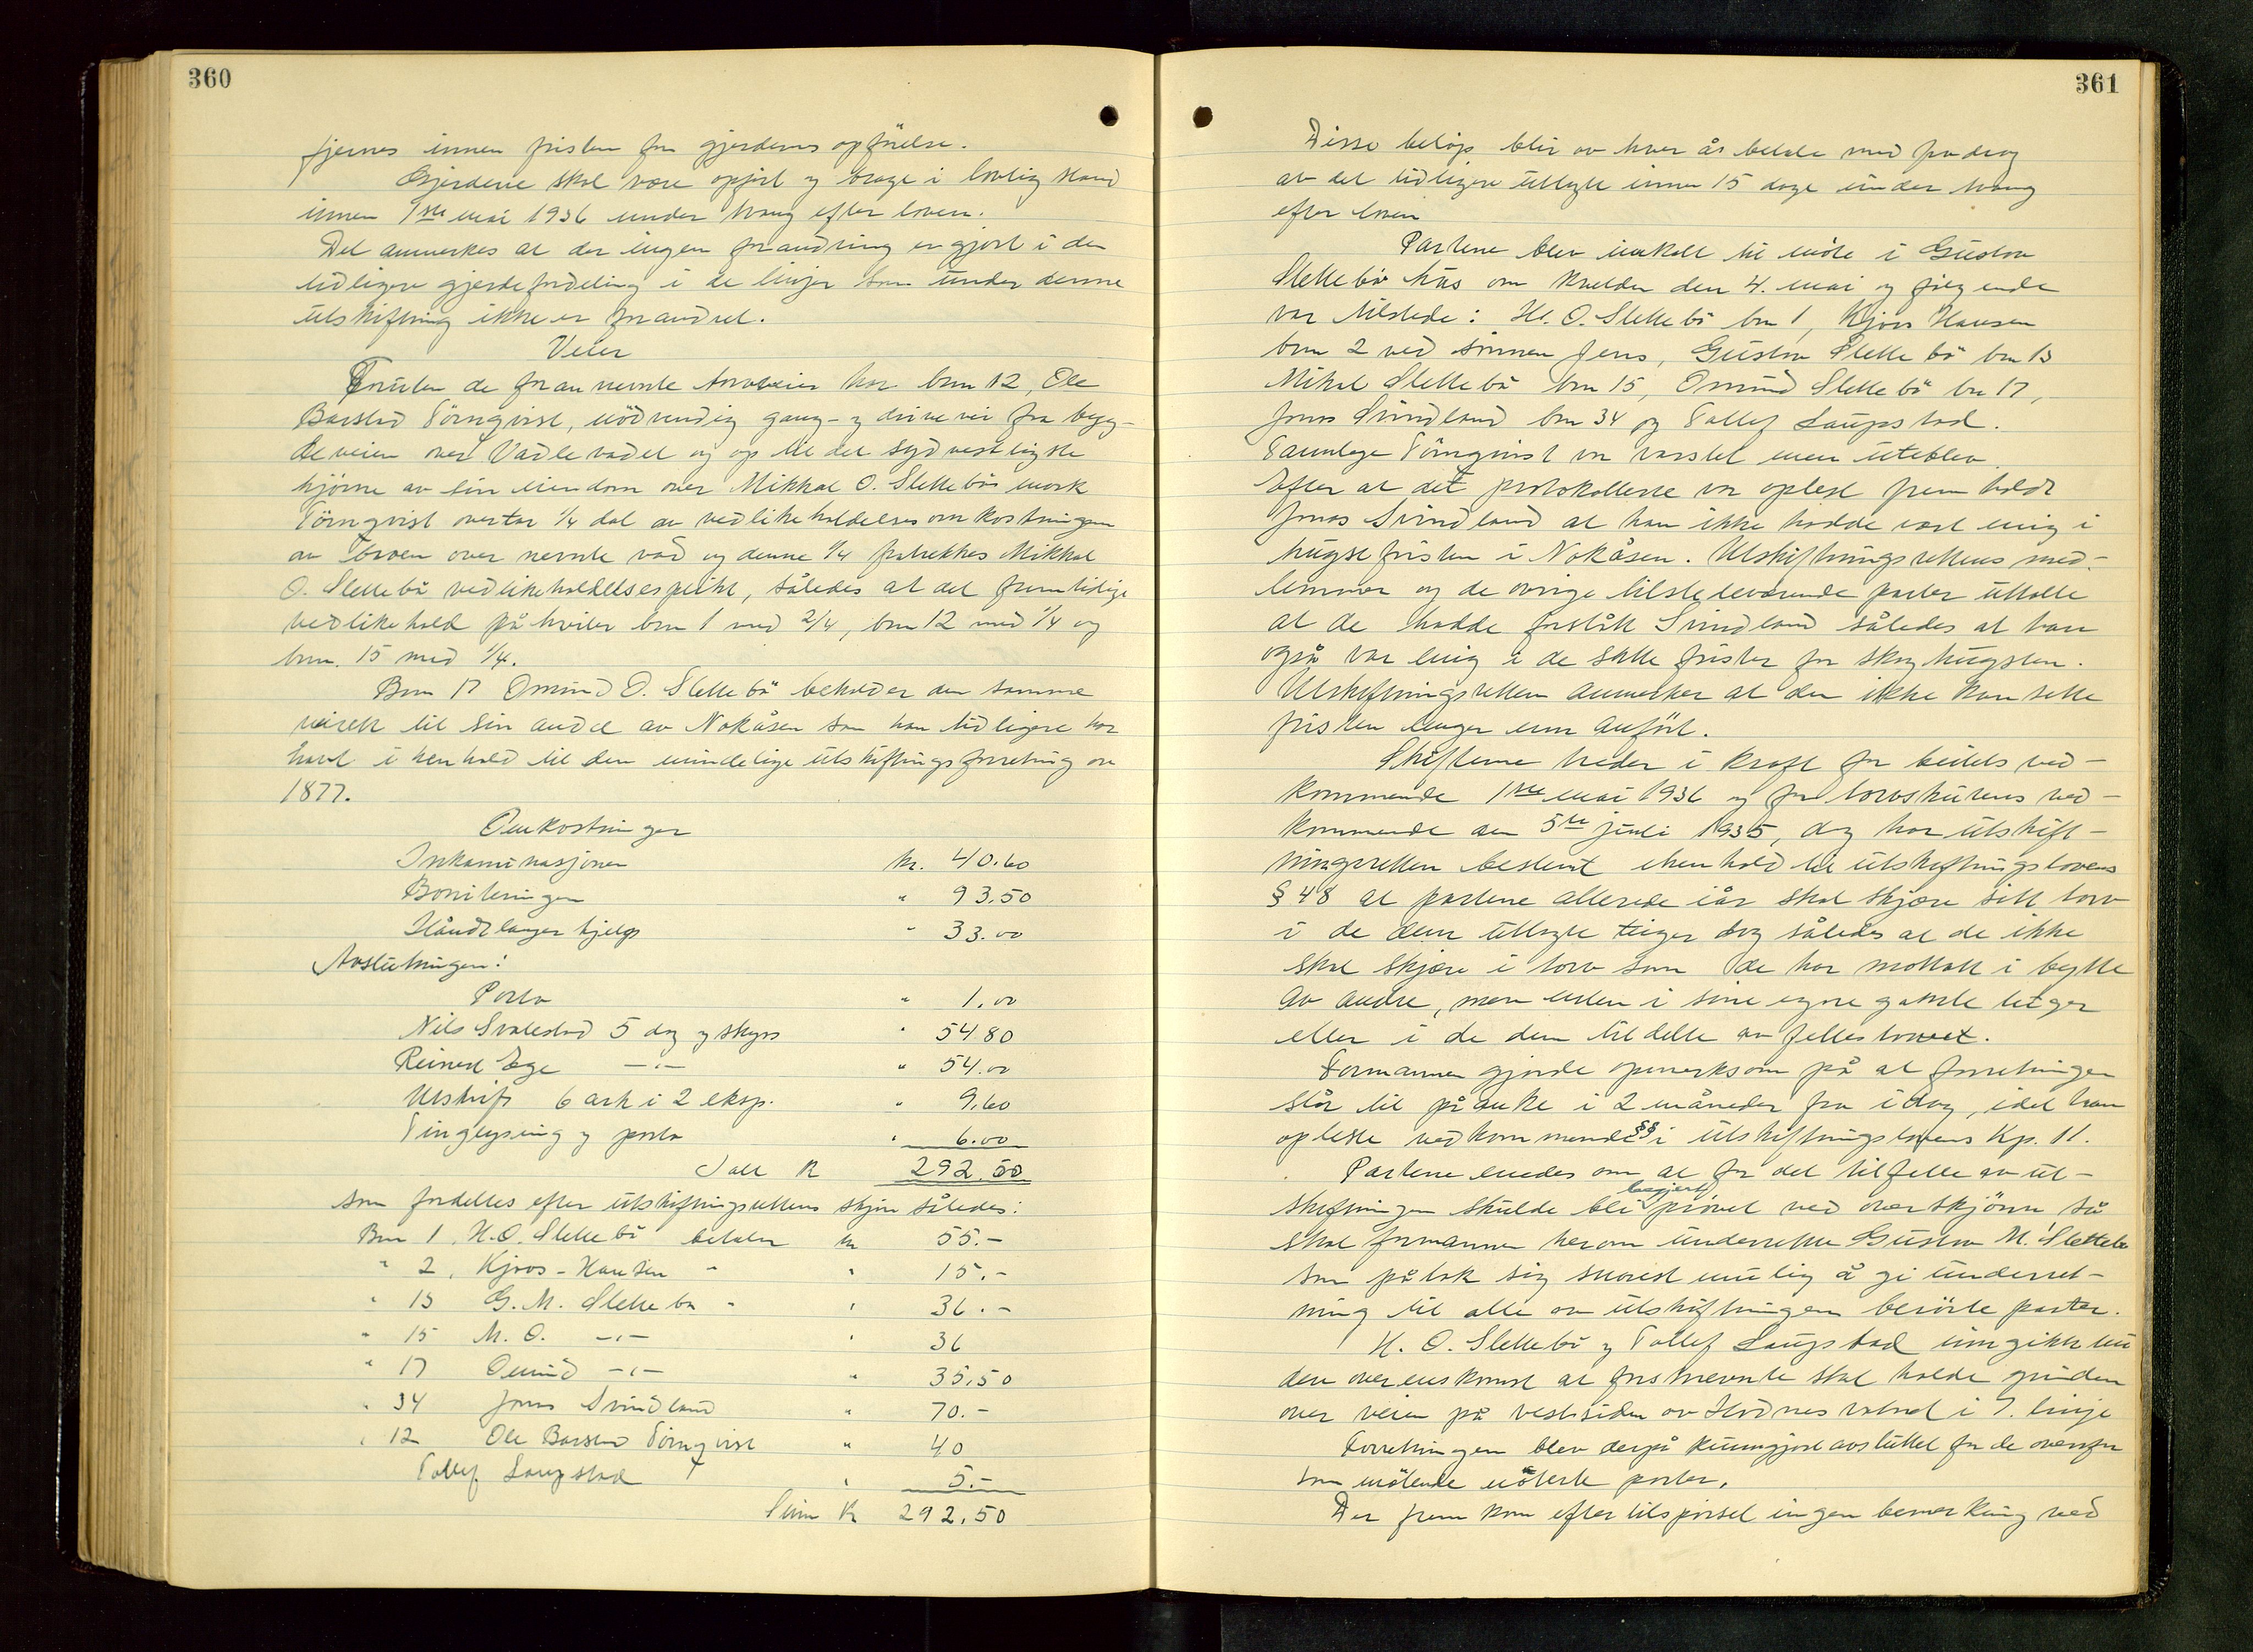 360
fjernes innen fristen for gjerdenes opförelse.
Gjerdene skal være opfört og bragt i lovlig stand
innen 1ste mai 1936 under tvang efter loven.
Det anmerkes at der ingen forandring er gjort i den
tidligere gjerdefordeling i de linjer som under denne
utskiftning ikke er forandret.
Veier
Foruten de foran nevnte torvveier har bnr 12, Ole
Barstad Törnqvist, nödvendig gang- og drivevei fra byg-
deveien over Vadlevadet og op til det sydvestligste
hjörne av sin eiendom over Mikkal O. Slettebös mark
Törnqvist overtar 1/4 del av vedlikeholdelsesomkostningen
av broen over nevnte vad og denne 1/4 fratrekkes Mikkal
O. Slettebö vedlikeholdelsesplikt, således at det fremtidige
vedlikehold påhviler bnr 1 med 2/4, bnr 12 med 1/4 og
bnr. 15 med 1/4.
Bnr 17 Omund O. Slettebö beholder den samme
veirett til sin andel av Nokåsen som han tidligere har
havt i henhold til den mindelige utskiftningsforretning av
1877.
Omkostninger
Inkaminasjonen kr. 40.60
Boniteringen " 93.50
Håndlanger hjelp " 33.00
Avslutningen:
Porto " 1,00
Nils Svalestad 5 dag og skyss " 54 80
Reinert Ege -"- " 54.00
Utskrift 6 ark i 2 eksp. " 9,60
Tinglysing og porto " 6.00
Ialt K 292.50
som fordelles efter utskiftningsrettens skjön således:
Bnr 1. H.O. Slettebö betaler kr 55.-
" 2. Kjoss-Hansen " " 15.-
" 13 G.M. Slettebö " " 36.-
" 15 M. O. -"- " 36
" 17 Omund -"- " 35,50
" 34 Jonas Svindland " 70.-
" 12 Ole Barstad Törnqvist " 40
Tollef Laupstad " 5.-
Sum K 292,50
361
Disse belöp blir av hver år betale med fradrag
av det tidligere utlagte innen 15 dage under tvang
efter loven
Partene blev innkalt til möte i Gustav
Slettebö hus om kvelden den 4. mai og fölgende
var tilstede: H. O. Slettebö bnr 1, Kjoss Hansen
bnr 2 ved sönnen Jens, Gustav Slettebö bnr 13
Mikal Slettebö bnr 15, Omund Slettebö bnr 17,
Jonas Svindland bnr 34 og Tollef Laupstad.
Tannlege Törnqvist var varslet men uteblev.
Efter at det protokollerte var oplest fremholdt
Jonas Svindland at han ikke hadde vært enig i
hugstfristen i Nokåsen. Utskiftningsrettens med-
lemmer og de övrige tilstedeværende parter uttalte
at de hadde forstått Svindland således at han
også var enig i de satte frister for skoghugsten.
Utskiftningsretten anmerker at den ikke kan sette
fristen lenger enn anfört.
Skiftene treder i kraft for beitets ved-
kommende 1ste mai 1936 og for torvskurens ved-
kommende den 5te juli 1935, dog har utskift-
ningsretten bestemt i henhold til utskiftningslovens
§ 48 at partene allerede iår skal skjære sitt torv
i de dem utlagte teiger dog således at de ikke
skal skjære i torv som de har mottatt i bytte
av andre, men enten i sine egne gamle teiger
eller i de dem tildelte av fellestorvet.
Formannen gjorde opmerksom på at forretningen
står til påanke i 2 måneder fra idag, idet han
opleste vedkommende §§ i utskiftningslovens Kp. 11.
Partene enedes om at for det tilfelle av ut-
skiftningen skulde bli begjert prövet ved overskjönn så
skal formannen herom underrette Gustav M. Slettebö
som påtok sig snarest mulig å gi underret-
ning til alle av utskiftningen berörte parter.
H. O. Slettebö og Tollef Laupstad inngikk un
den overenskomst at förstnevnte skal holde grinden
over veien på vestsiden av Hodnes vatnet i 7. linje
Forretningen blev derpå kunngjort avsluttet for de ovenfor
som mötende noterte parter.
Der fremkom efter tilspörsel ingen bemerkning ved